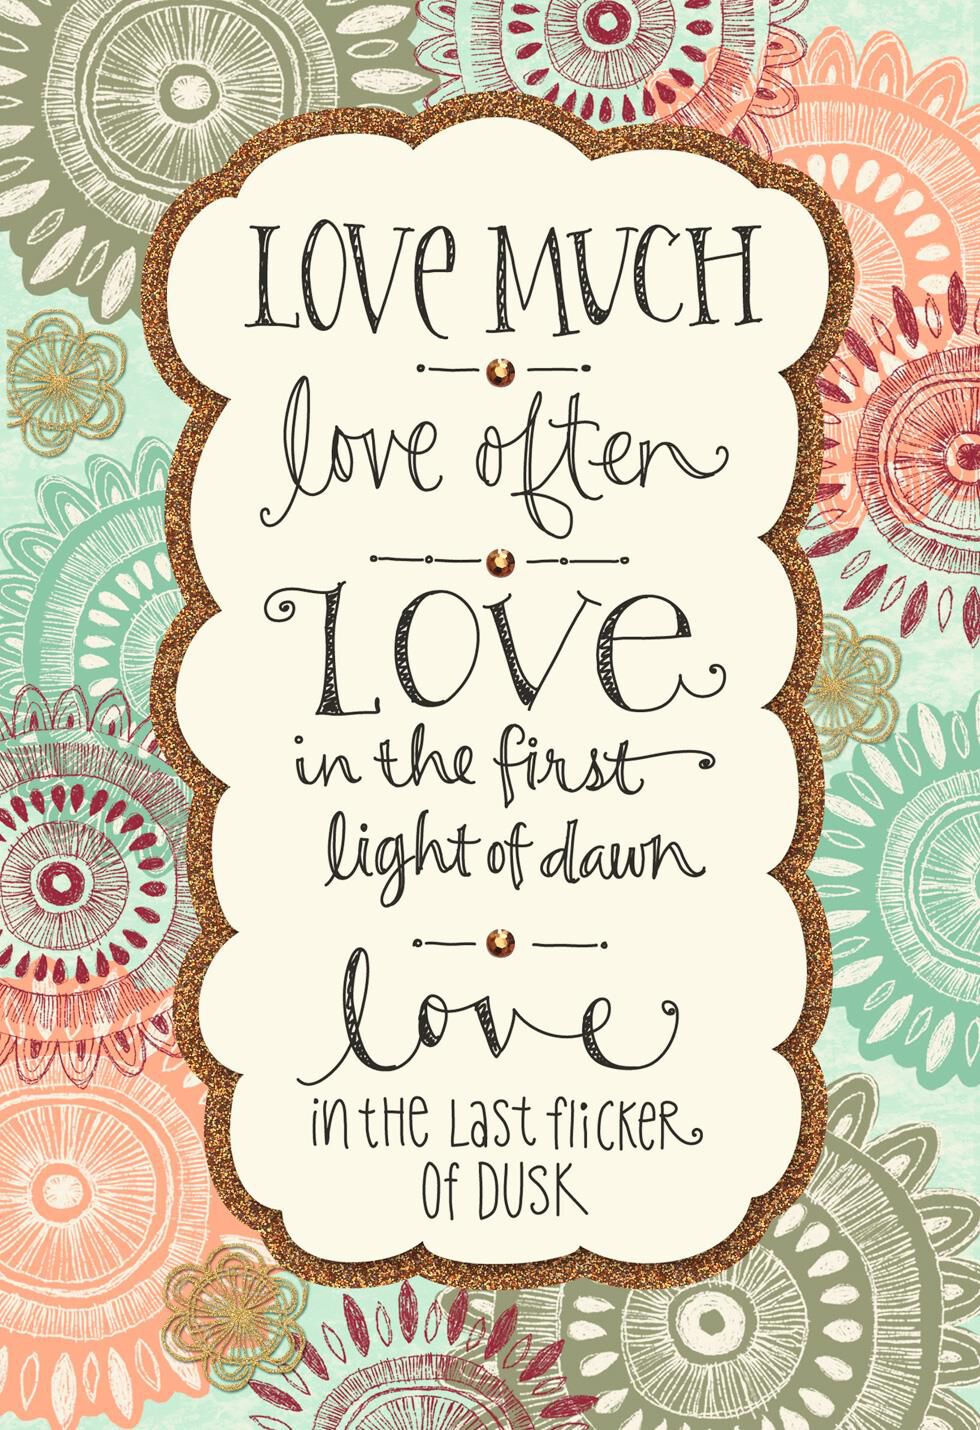 LOVE MUCH
love often
LOVE
in the first
light of dawn
love
in tHE Last flicKER
Of DUSK